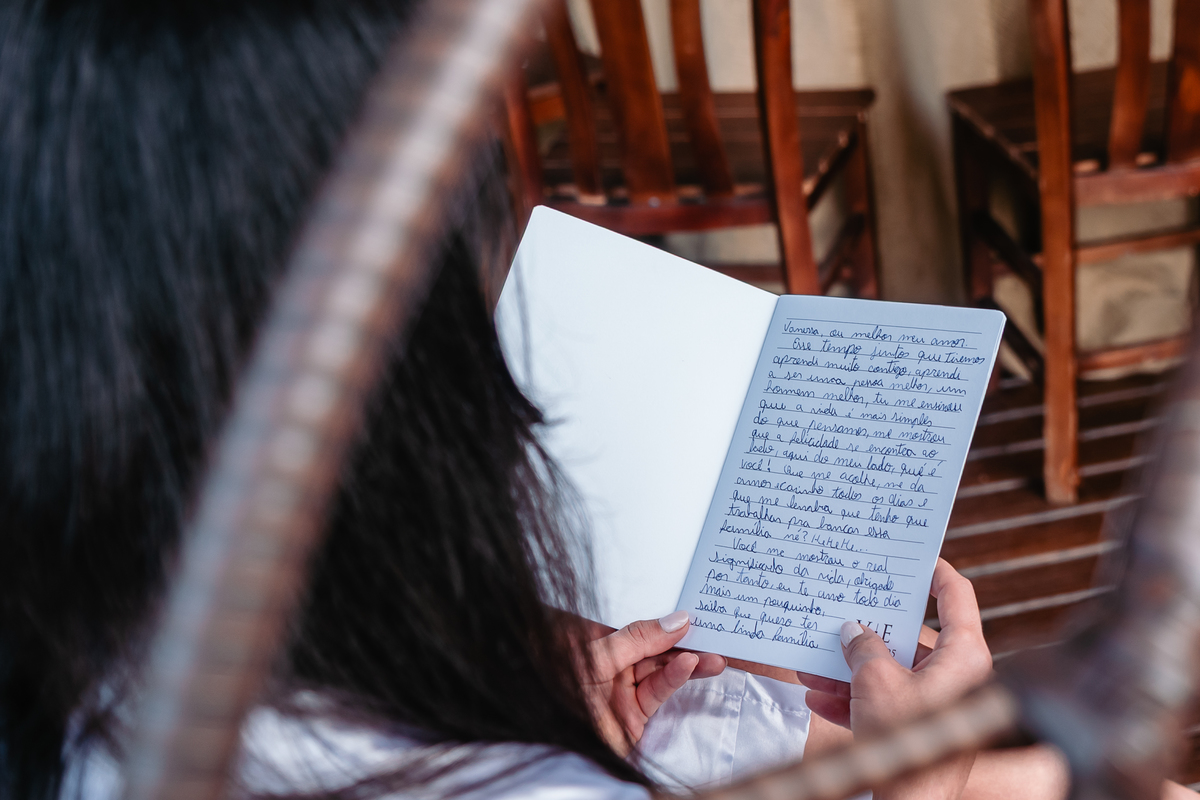 Vanessa, ou melhor meu amor.
Esse tempo juntos que tivemos
aprendi muito contigo, aprendi
a ser umva pessoa melhor, um
homem melhor, tu me ensinou
que a vida é mais simples
do que pensamos, me mostrou
que a felicidade se encontra ao
lado, aqui do meu lado, que é
você! Que me acolhe, me da
amor e carinho todos os dias e
que me lembra que tenho que
trabalhar pra bancar essa
família né? HeHeHe...
Você me mostrou o real
significado da vida, obrigado
por tanto, eu te amo todo dia
mais um pouquinho,
saiba que quero ter
uma linda família